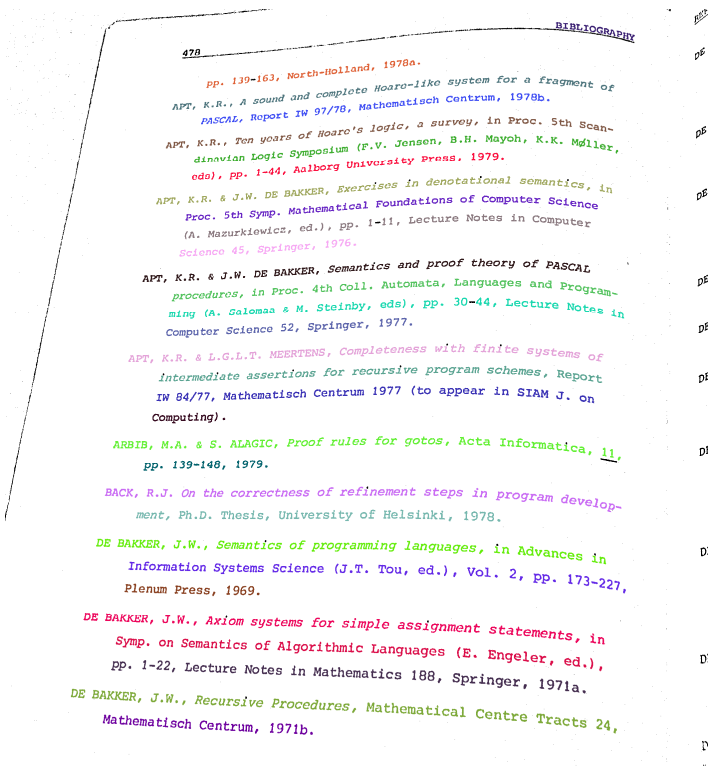 BIBLIOGRAPHY
478
pp. 139-163, North-Holland, 1978a.
APT, K.R., A sound and complete Hoare-like system for a fragment of
PASCAL, Report IW 97/78, Mathematisch Centrum, 1978b.
APT, K.R., Ten years of Hoare's logic, a survey, in Proc. 5th Scan-
dinavian Logic Symposium (F.V. Jensen, B.H. Mayoh, K.K. Møller,
eds), pp. 1-44, Aalborg University Press, 1979.
APT, K.R. & J.W. DE BAKKER, Exercises in denotational semantics, in
Proc. 5th Symp. Mathematical Foundations of Computer Science
(A. Mazurkiewicz, ed.), pp. 1-11, Lecture Notes in Computer
Science 45, Springer, 1976.
APT, K.R. & J.W. DE BAKKER, Semantics and proof theory of PASCAL
procedures, in Proc. 4th Coll. Automata, Languages and Program-
ming (A. Salomaa & M. Steinby, eds), pp. 30-44, Lecture Notes in
Computer Science 52, Springer, 1977.
APT, K.R. & L.G.L.T. MEERTENS, Completeness with finite systems of
intermediate assertions for recursive program schemes, Report
IW 84/77, Mathematisch Centrum 1977 (to appear in SIAM J. on
Computing).
ARBIB, M.A. & S. ALAGIC, Proof rules for gotos, Acta Informatica, 11,
pp. 139-148, 1979.
BACK, R.J. On the correctness of refinement steps in program develop-
ment, Ph.D. Thesis, University of Helsinki, 1978.
DE BAKKER, J.W., Semantics of programming languages, in Advances in
Information Systems Science (J.T. Tou, ed.), Vol. 2, pp. 173-227,
Plenum Press, 1969.
DE BAKKER, J.W., Axiom systems for simple assignment statements, in
Symp. on Semantics of Algorithmic Languages (E. Engeler, ed.),
pp. 1-22, Lecture Notes in Mathematics 188, Springer, 1971a.
DE BAKKER, J.W., Recursive Procedures, Mathematical Centre Tracts 24,
Mathematisch Centrum, 1971b.
DE
DE
DE
DE
DE
DE